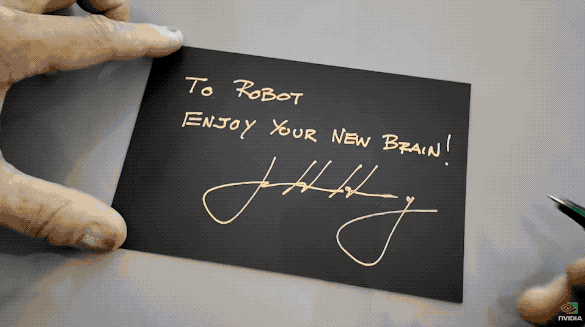 TO ROBOT
ENJOY YOUR NEW BRAIN!
NVIDIA